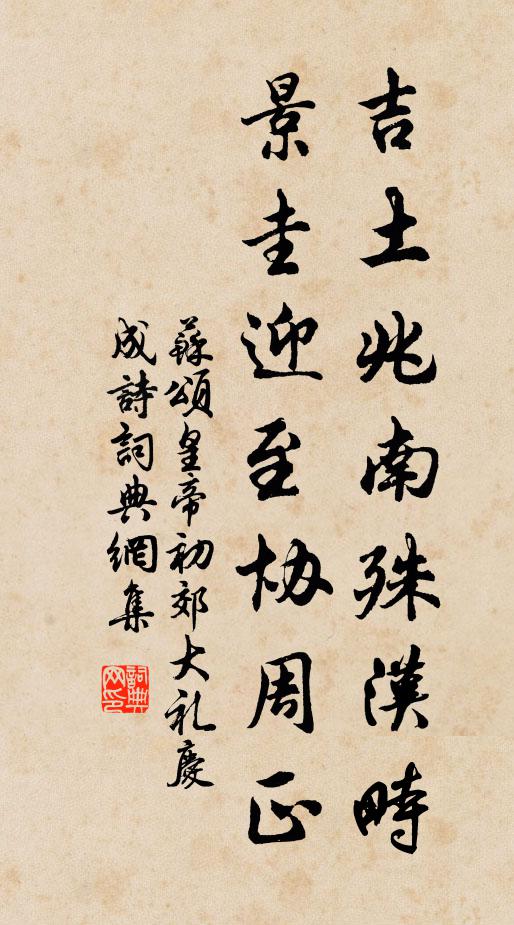 吉土兆南殊漢畤
景圭迎至協周正
蘇頌皇帝初郊大礼慶
成詩詞典網集
詞典网印